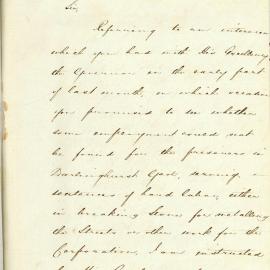 Sir,
Referring to an interview
which you had with His Excellency
the Governor in the early part
of last month, on which occasion
you promised to see whether
some employment could not
be found for the prisoners in
Darlinghurst Gaol, serving
sentences of hard labor, either
in breaking Stone for metalling
the Streets or other work for the
Corporation, I am instructed